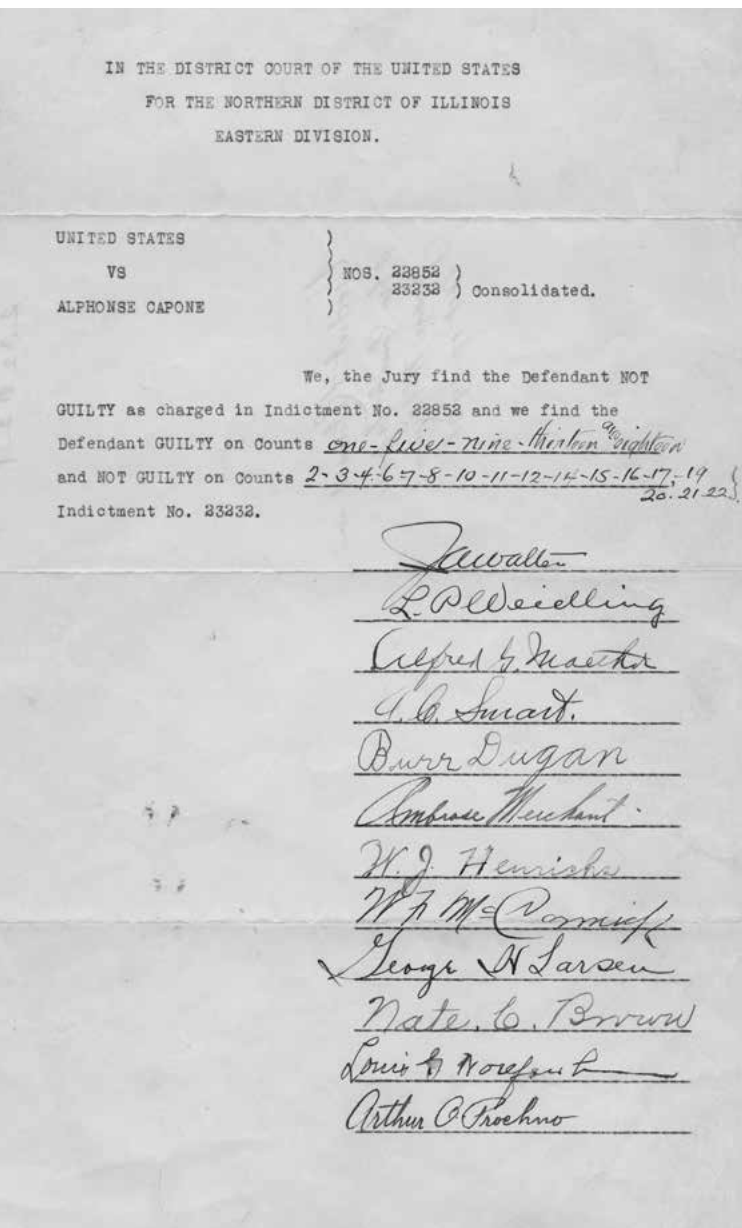 IN THE DISTRICT COURT OF THE UNITED STATES
FOR THE NORTHERN DISTRICT OF ILLINOIS
EASTERN DIVISION.
UNITED STATES )
VS ) NOS. 22852 )
) 23232 ) Consolidated.
ALPHONSE CAPONE )
We, the Jury find the Defendant NOT
GUILTY as charged in Indictment No. 22852 and we find the
Defendant GUILTY on Counts one-five-nine-thirteen and eighteen
and NOT GUILTY on Counts 2-3-4-6-7-8-10-11-12-14-15-16-17-19
20-21-22
Indictment No. 23232.
L. P. Weidling
Alfred G. Maether
A. C. Smart.
Burr Dugan
Ambrose Merchant
W. J. Henrichs
W F McCormick
George H Larsen
Nate. C. Brown
Louis G
Arthur O Prochno